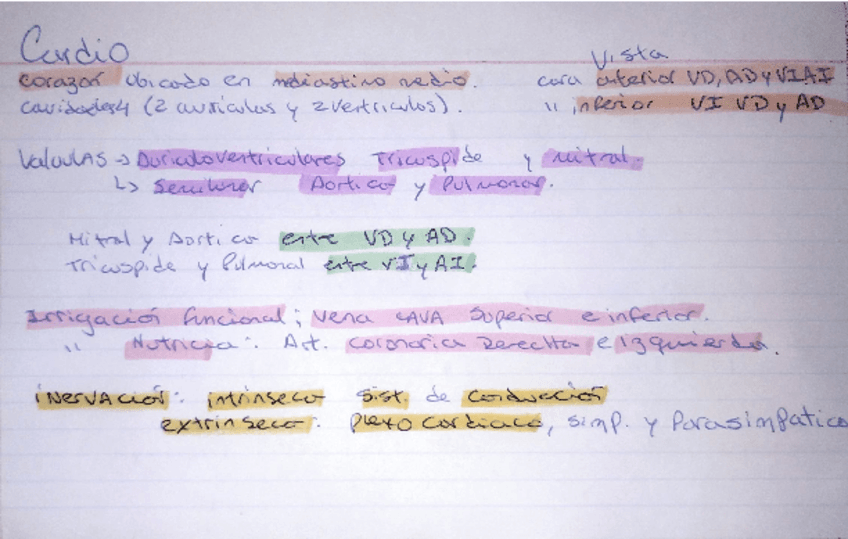 Cardio
Vista
corazón ubicado en mediastino medio. cara anterior VD, AD y VI AI
cavidades 4 (2 aurículas y 2 vertriculos). " inferior VI VD y AD
Valvulas → Auriculoventriculares Tricuspide y mitral.
↳ Semilunar Aortica y Pulmonar.
Mitral y Aortica entre VD y AD.
Tricuspide y Pulmonal entre VI y AI.
Irrigación funcional; vena CAVA Superior e inferior.
" Nutricia: Art. coronaria Derecha e izquierda.
iNERVACIÓN: intrinseco sist. de conducción
extrinseco: plexo cardiaco, simp. y Parasimpatico